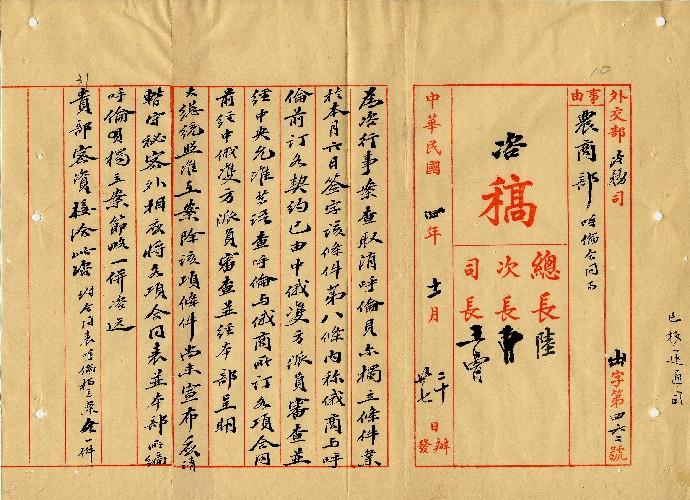 外交部 政務司
由字第四六二號
事由
農商部 呼倫合同事
咨
稿
總長 陸
次長
司長 王
中華民國 四年 十一月 二十 日辦
廿七 日發
為咨行事案查取消呼倫貝尔獨立條件業
於本月六日簽字該條件第八條內稱俄商與呼
倫前訂各契約已由中俄雙方派員審查並
經中央允准等語查呼倫与俄商所訂各項合同
前經中俄雙方派員審查並經本部呈明
大總統照准在案除該項條件尚未宣布應請
暫守秘密外相應將各項合同表並本部所編
呼倫貝獨立案節略一併咨送
貴部密資接洽此咨 附合同表呼倫獨立案各一件